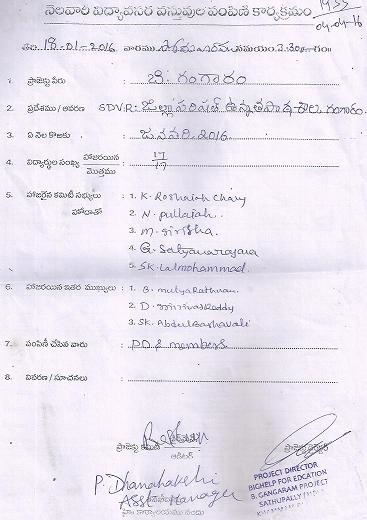 నెలవారీ విద్యావసర వస్తువుల పంపిణీ కార్యక్రమం
04-04-16
తేది. 18-01-2016 వారము సోమవారం సమయం
1. ప్రాజెక్టు పేరు : బి. గంగారం
2. ప్రదేశము / ఆవరణ : SDVR. జిల్లా పరిషత్ ఉన్నత పాఠశాల, గంగారం.
3. ఏ నెల కొఱకు : జనవరి, 2016
4. విద్యార్థుల సంఖ్య హాజరయిన : 17
మొత్తము 17
5. హాజరైన కమిటీ సభ్యులు : 1. K. Roshaiah Chary
హోదాతో 2. N. pullaiah.
3. M. Sirisha.
4. G. Satyanarayana
5. SK. Lalmohammad.
6. హాజరయిన ఇతర ముఖ్యులు : 1. B. mutyaRathnam.
2. D. SrinivasReddy
3. SK. AbdulBashavali
7. పంపిణీ చేసిన వారు : P.D & members
8. వివరణ / సూచనలు :
ప్రాజెక్టు కమిటీ ప్రాజెక్టు డైరెక్టర్
ఆడిటర్
PROJECT DIRECTOR
BICHELP FOR EDCATION
B. GANGARAM PROJECT
SATHUPALLY
P. Dhanalakshi
Asst Manager